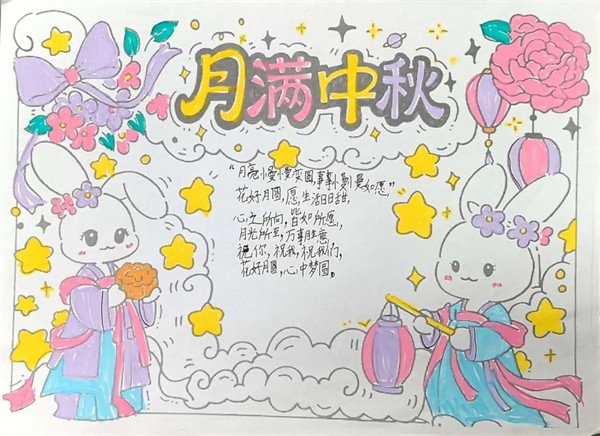 月满中秋
“月亮慢慢变圆,事事慢慢如愿”
花好月圆,愿,生活日日甜,
心之所向,皆如所愿,
月光所至,万事胜意,
祝你,祝我,祝我们,
花好月圆,心中梦圆。